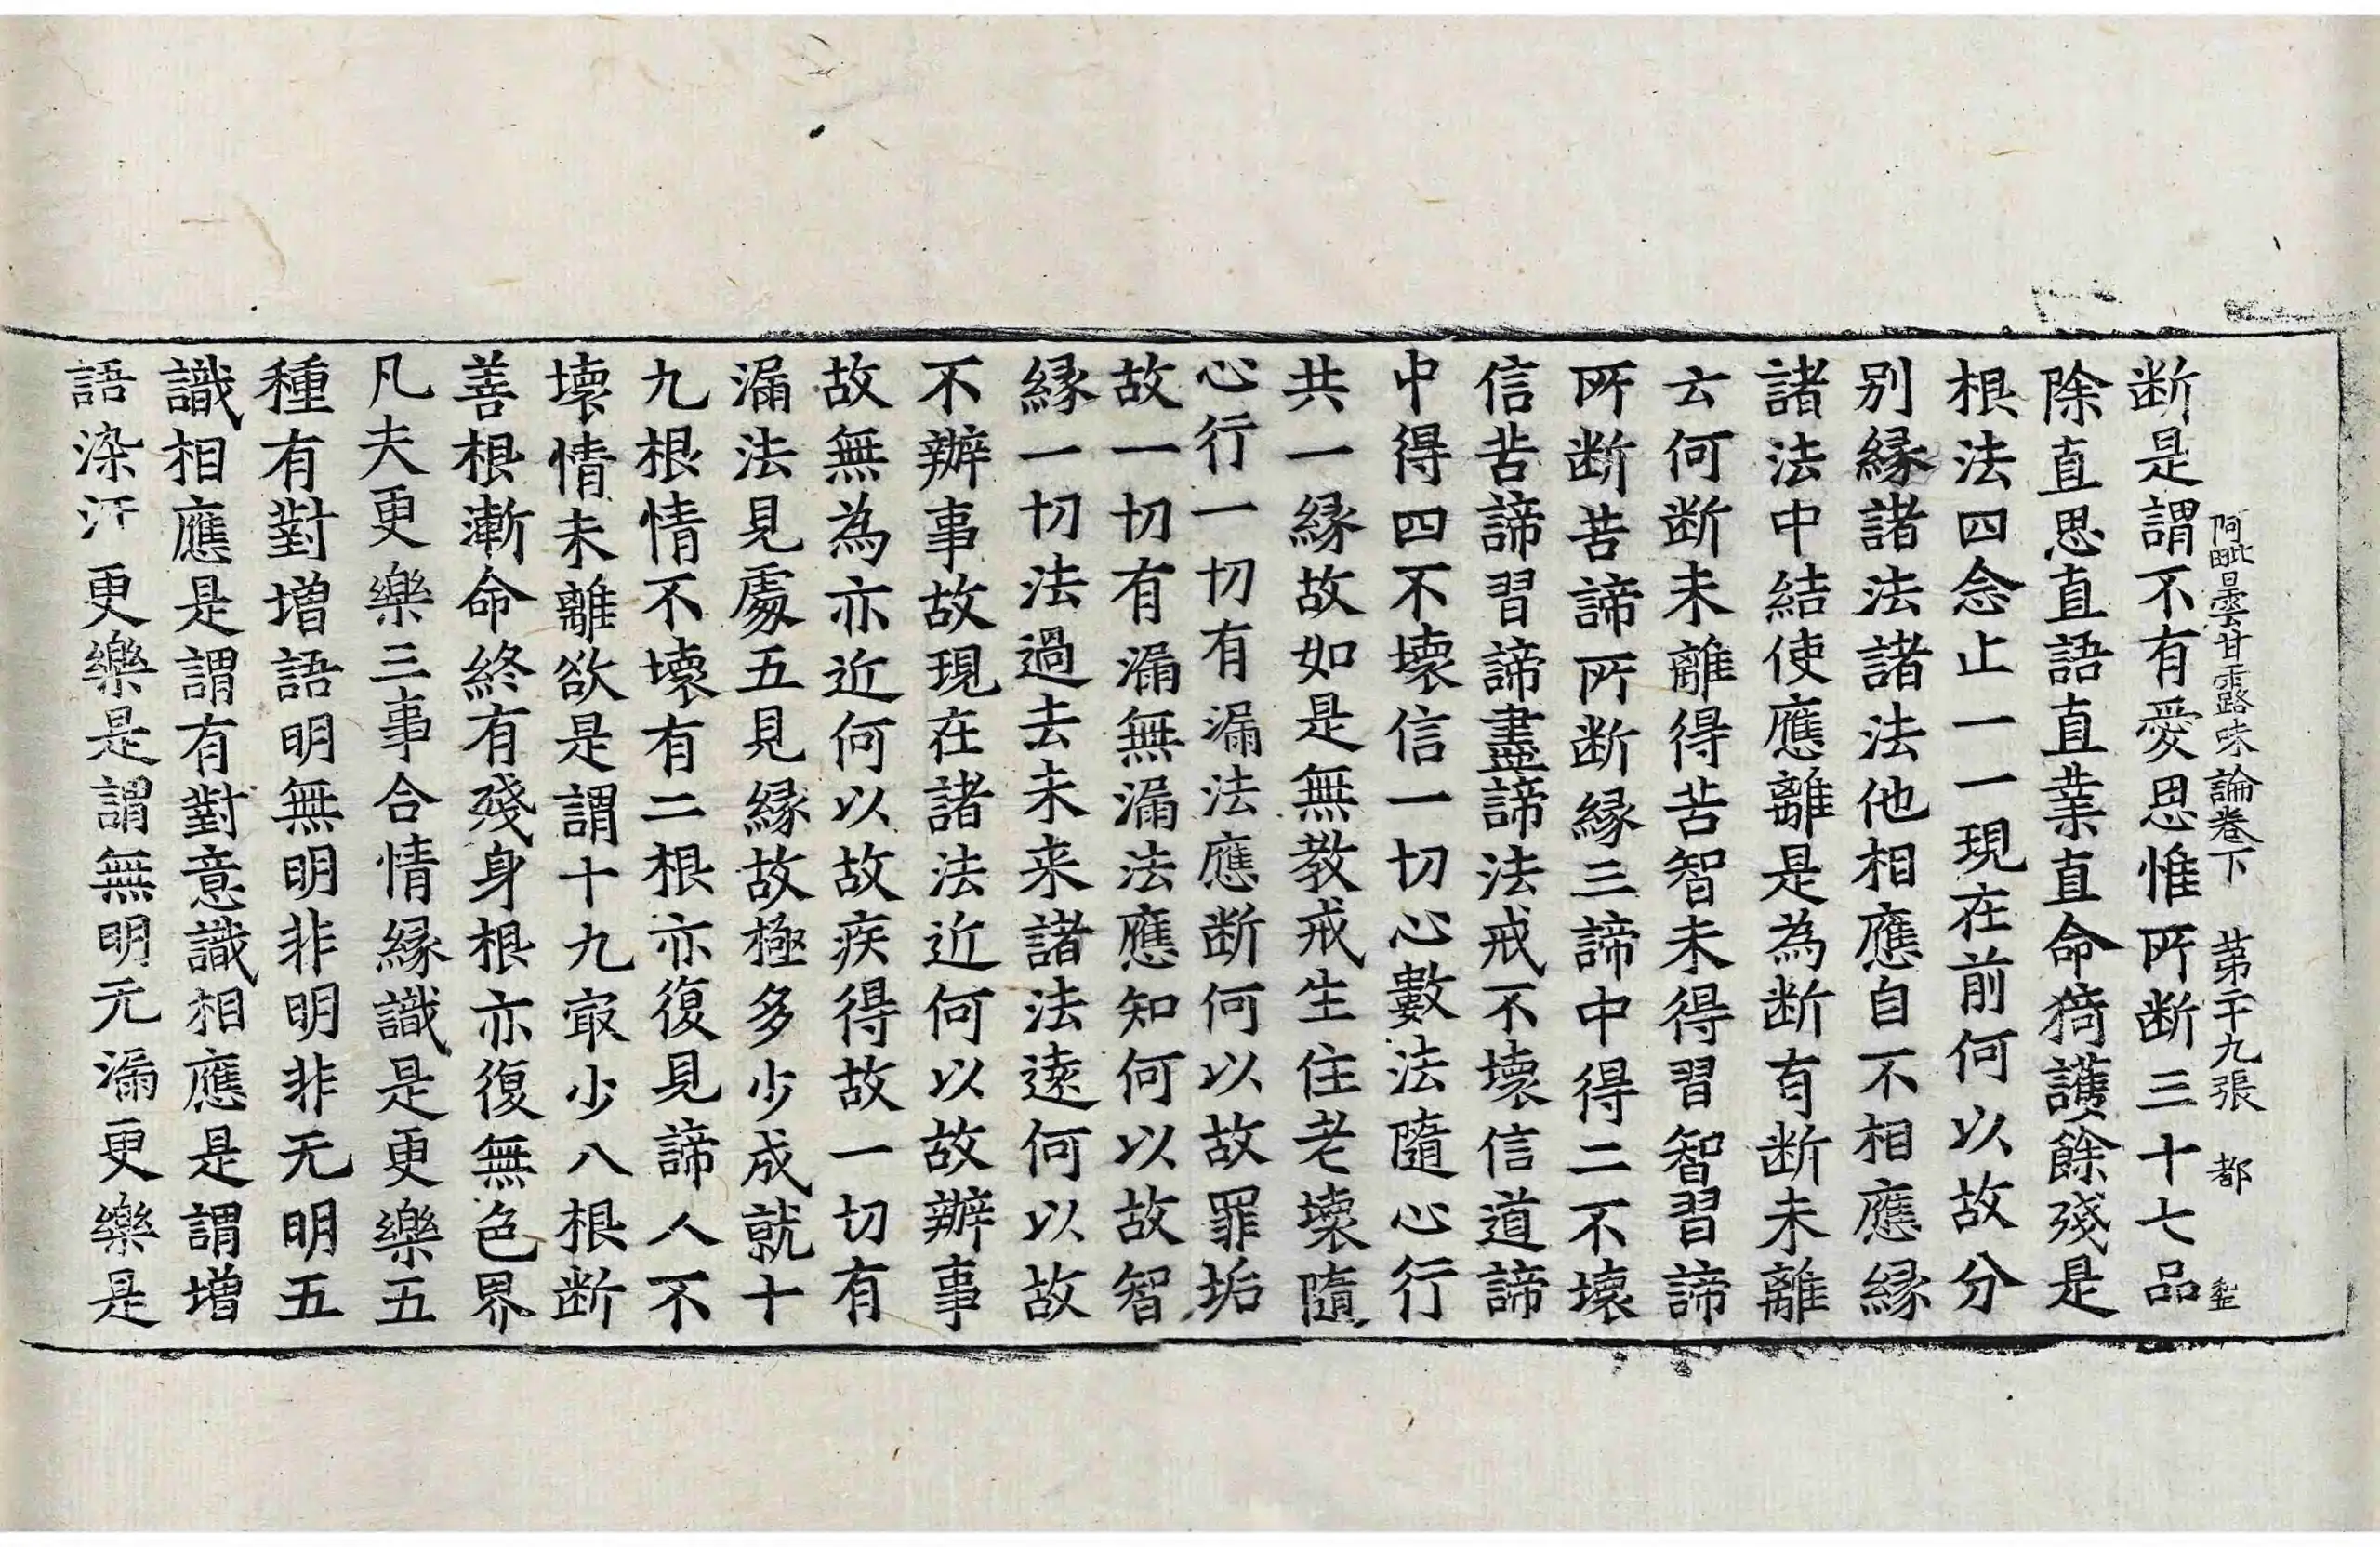 阿毗曇甘露味論卷下　第二十九張　都
断是謂不有愛思惟所断三十七品
除直思直語直業直命猗護餘殘是
根法四念止一一現在前何以故分
别縁諸法諸法他相應自不相應縁
諸法中結使應離是為断有断未離
云何断未離得苦智未得習智習諦
所断苦諦所断縁三諦中得二不壊
信苦諦習諦盡諦法戒不壊信道諦
中得四不壊信一切心數法隨心行
共一縁故如是無教戒生住老壊隨
心行一切有漏法應断何以故罪垢
故一切有漏無漏法應知何以故智
縁一切法過去未来諸法逺何以故
不辦事故現在諸法近何以故辦事
故無為亦近何以故疾得故一切有
漏法見處五見縁故極多少成就十
九根情不壊有二根亦復見諦人不
壊情未離欲是謂十九㝡少八根断
善根漸命終有殘身根亦復無色界
凡夫更樂三事合情縁識是更樂五
種有對増語明無明非明非无明五
識相應是謂有對意識相應是謂増
語染汗更樂是謂無明无漏更樂是